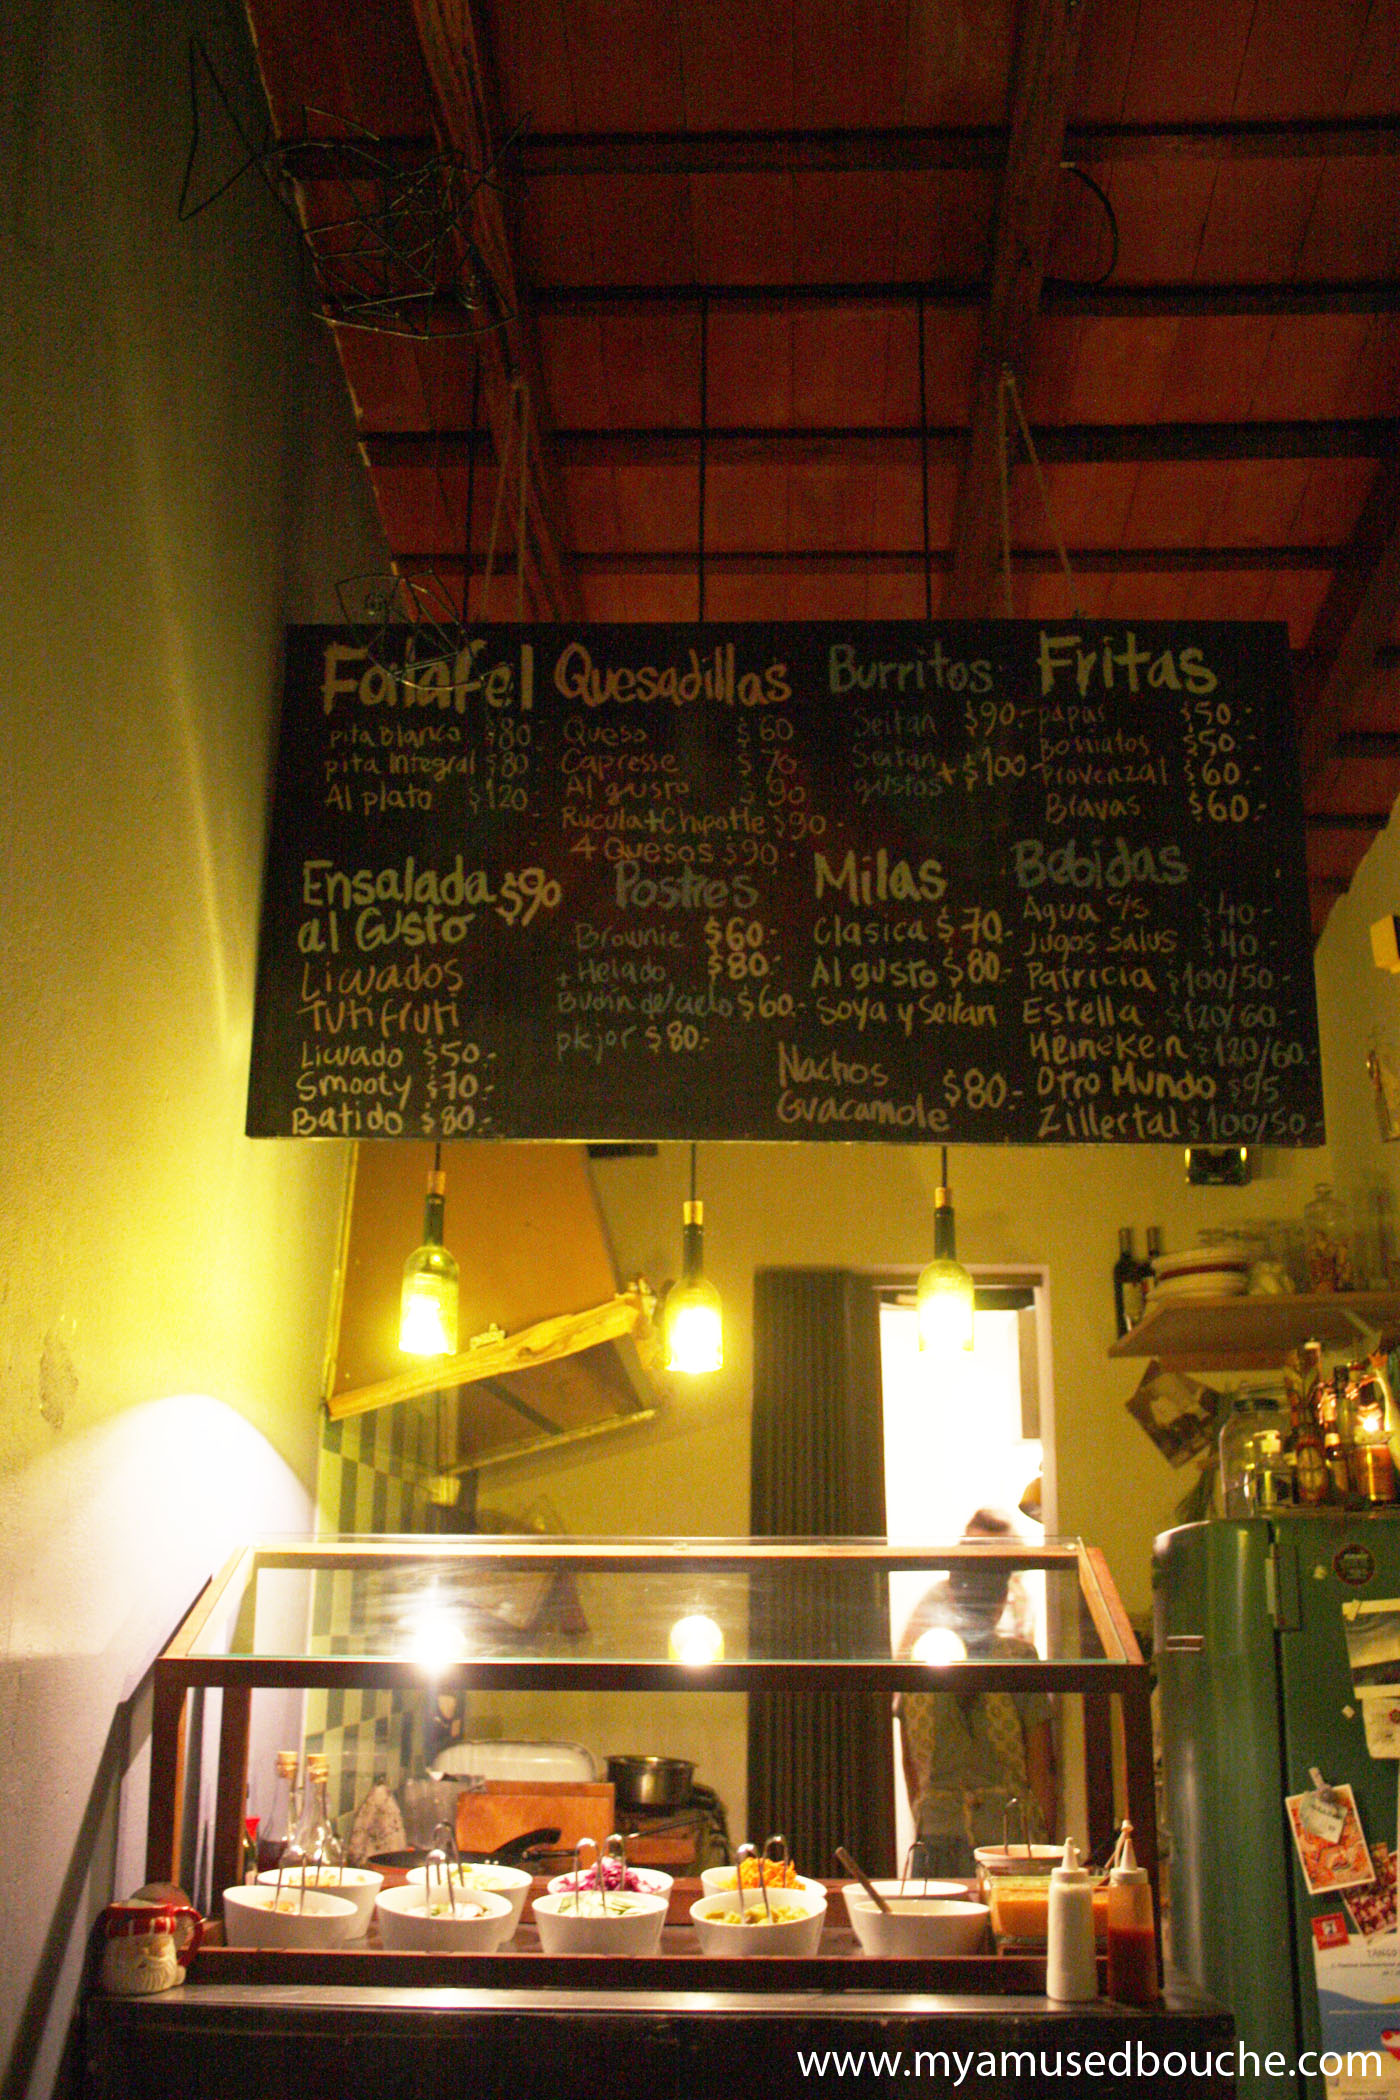 Falafel
pita Blanca $80.-
pita Integral $80.-
Al plato $120.-
Quesadillas
Queso $60
Capresse $70
Al gusto $90
Rucula+Chipotle $90.-
4 Quesos $90.-
Burritos
Seitan $90.-
Seitan
gustos +$100.-
Fritas
papas $50.-
Boniatos $50.-
provenzal $60.-
Bravas $60.-
Ensalada $90
al Gusto
Licuados
Tutifruti
Licuado $50.-
Smooty $70.-
Batido $80.-
Postres
Brownie $60.-
+Helado $80.-
Budin del cielo $60.-
pkjor $80.-
Milas
Clasica $70.-
Al gusto $80.-
Soya y Seitan
Nachos
Guacamole $80.-
Bebidas
Agua c/s $40.-
Jugos Salus $40.-
Patricia $100/50.-
Estella $120/60.-
Heineken $120/60.-
Otro Mundo $95
Zillertal $100/50.-
TANGO
www.myamusedbouche.com